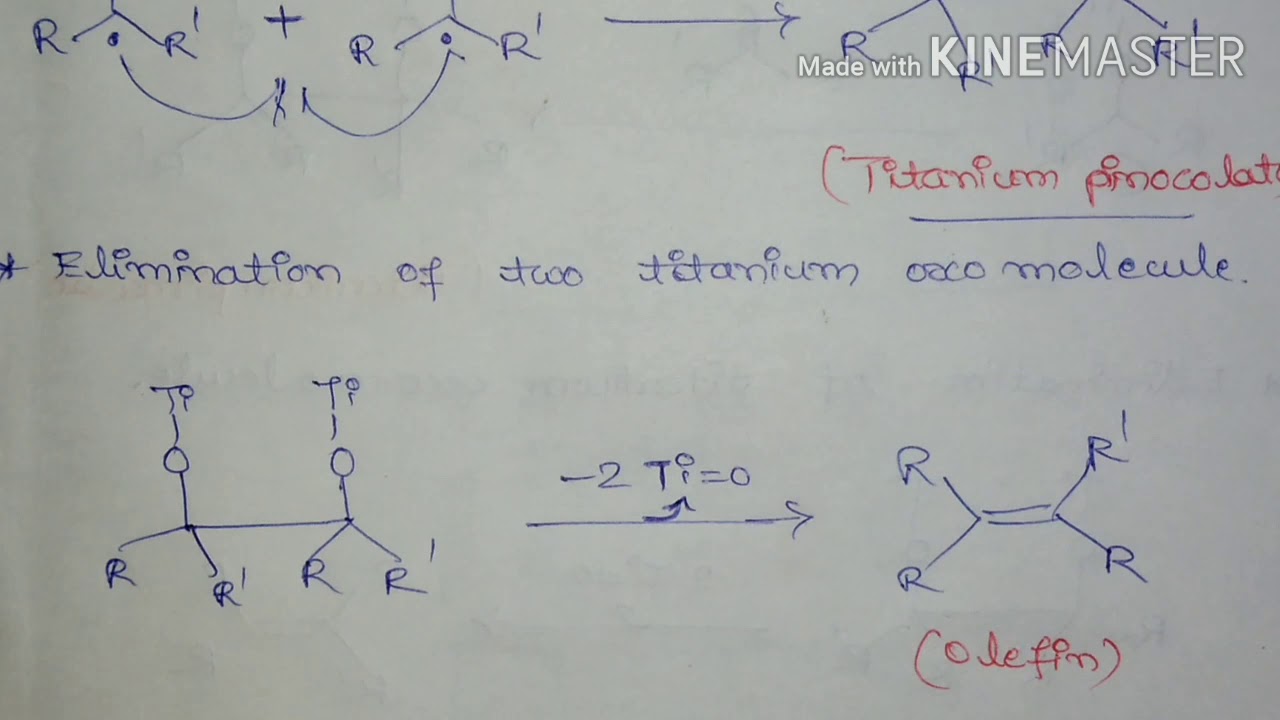 R R' + R R' R R R R'
Made with KINEMASTER
(Titanium pinocolat
* Elimination of two titanium oxo molecule.
Ti Ti
O O
-2 Ti=0
R R' R R'
R R'
R R
(Olefin)